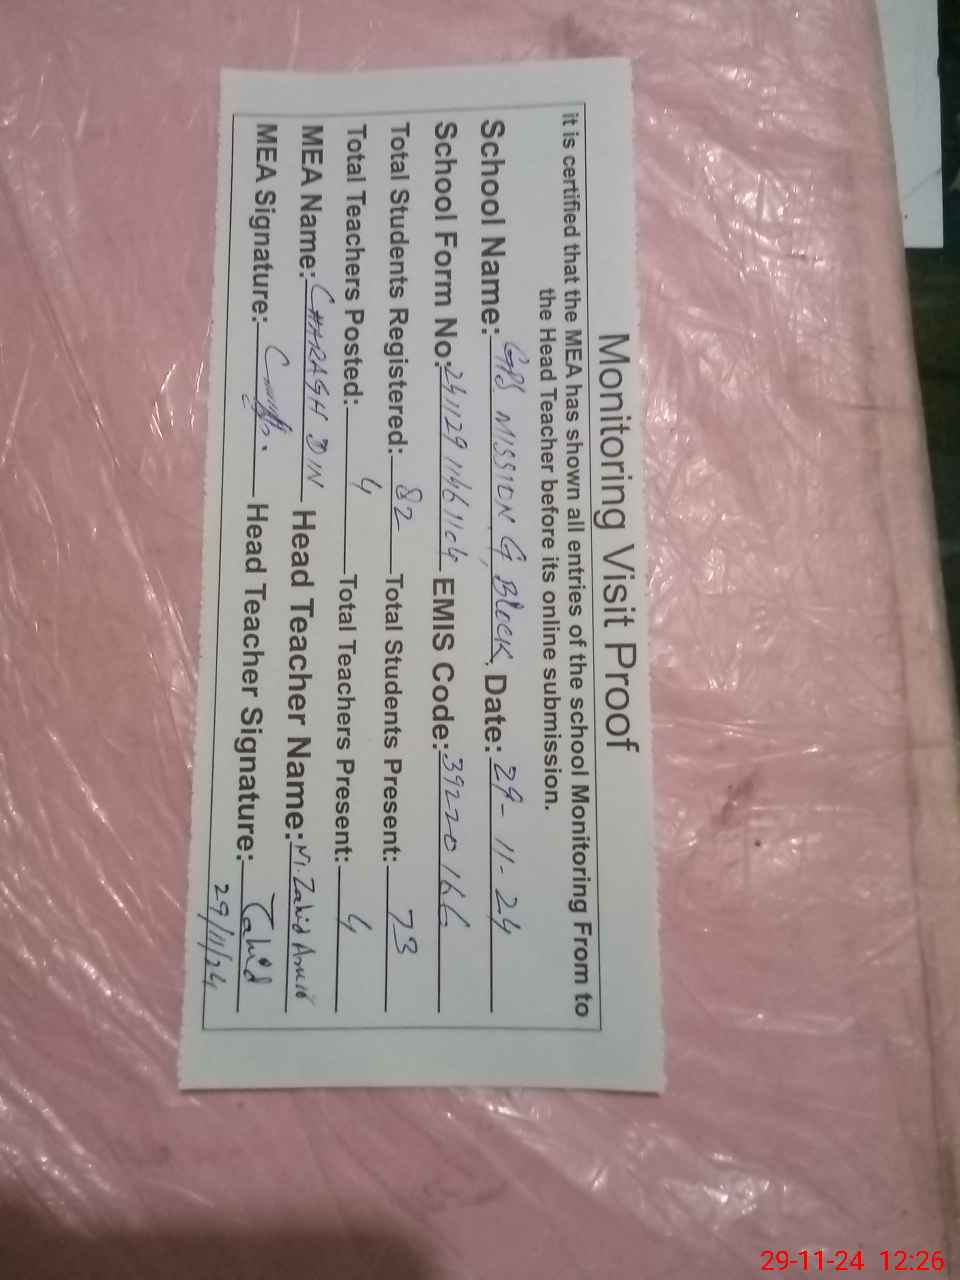 Monitoring Visit Proof
it is certified that the MEA has shown all entries of the school Monitoring From to
the Head Teacher before its online submission.
School Name: GPS MISSION G, Block, Date: 29-11-24
School Form No: EMIS Code:
Total Students Registered: 82 Total Students Present: 73
Total Teachers Posted: 4 Total Teachers Present: 4
MEA Name: CHARAGH DIN Head Teacher Name: Zahid
MEA Signature: Head Teacher Signature: Zahid
29/11/24
29-11-24 12:26